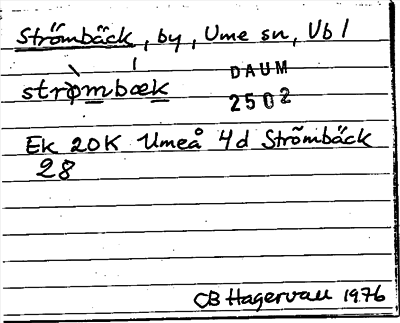 Strömbäck, by, Ume sn, Vb l
strømbæk
DAUM
2502
Ek 20K Umeå 4d Strömbäck
28
CB Hagervall 1976